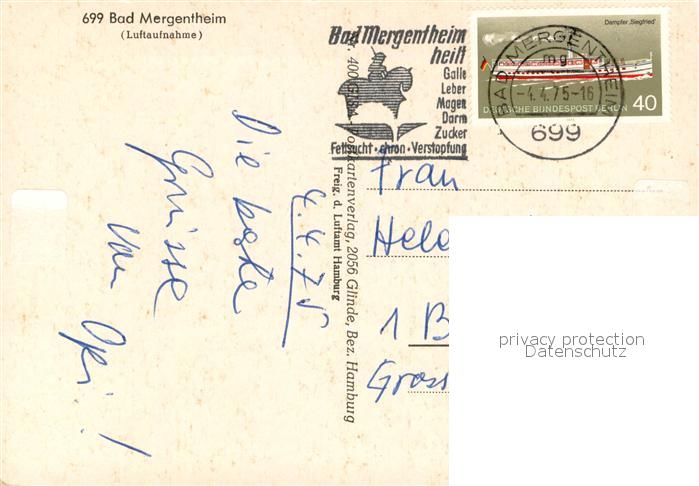 699 Bad Mergentheim
(Luftaufnahme)
Bad Mergentheim
heilt
Galle
Leber
Magen
Darm
Zucker
Fettsucht · chron · Verstopfung
Dampfer „Siegfried“
DEUTSCHE BUNDESPOST BERLIN 40
BAD MERGENTHEIM
mg
-4.4.75-16
699
4.4.75
Die beste
Grüsse
von
Opi!
400
Postkartenverlag, 2056 Glinde, Bez. Hamburg
Freig. d. Luftamt Hamburg
Frau
Hele
1 B
Gross
privacy protection
Datenschutz